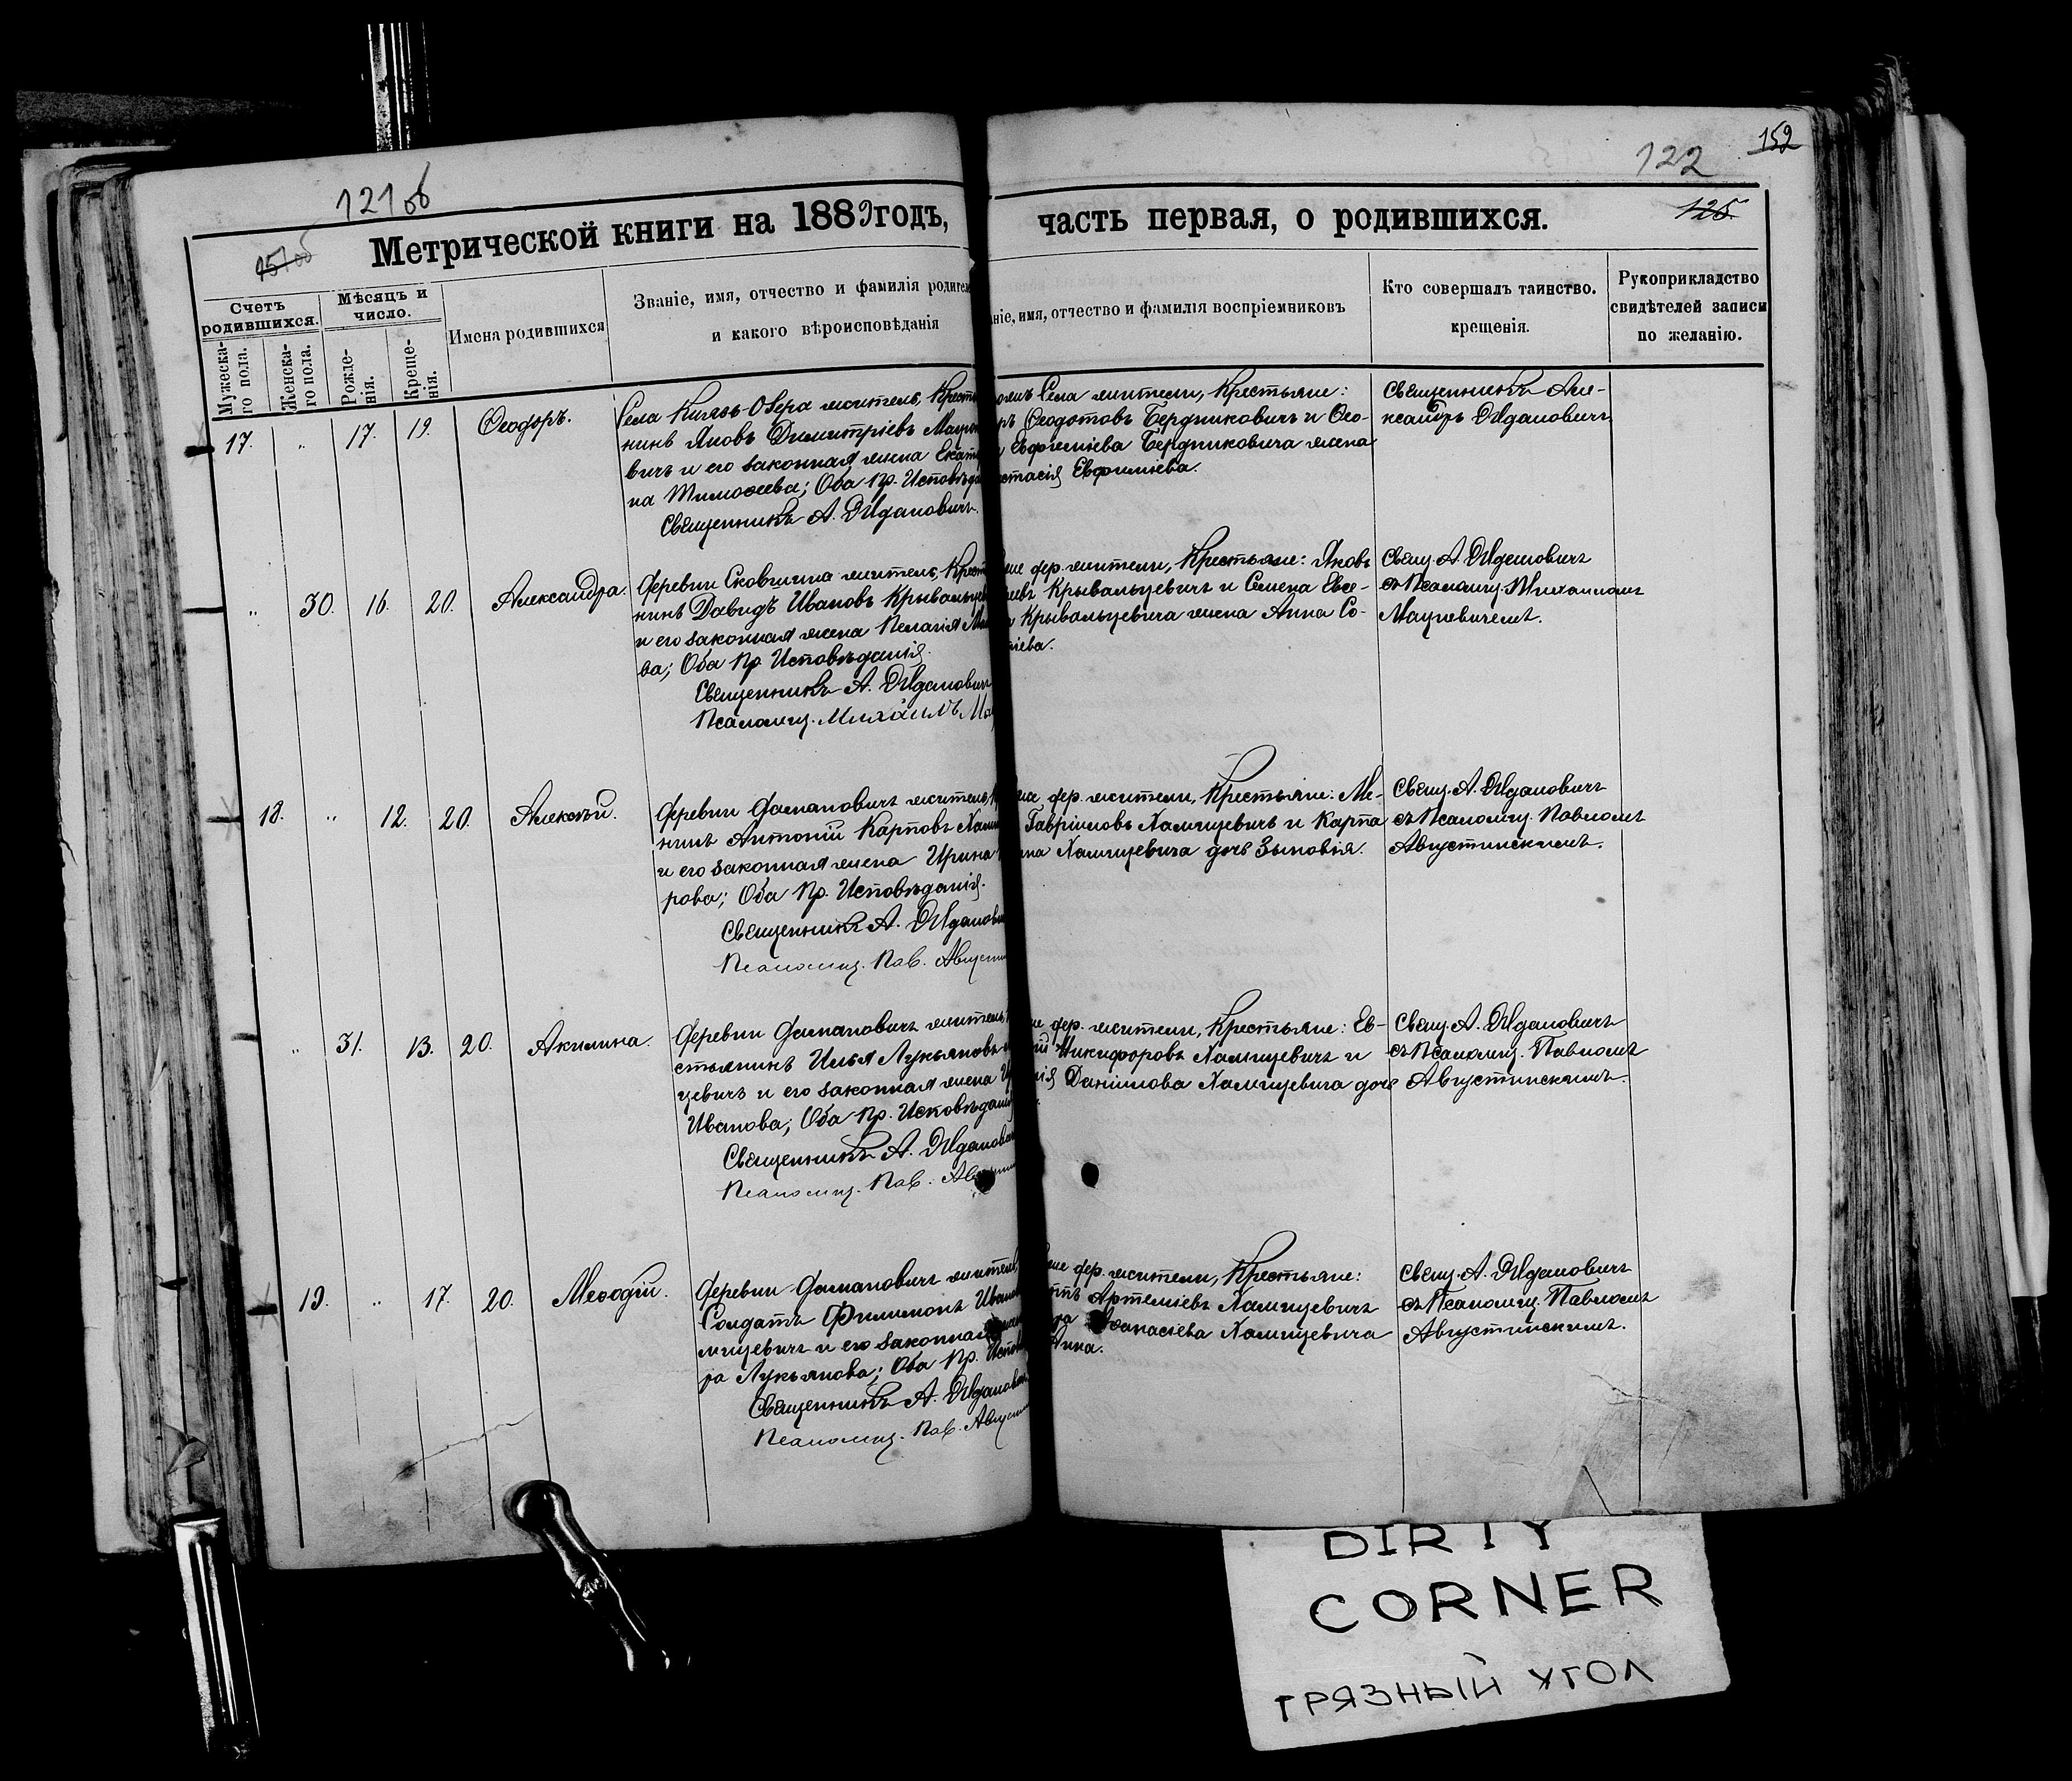 121об
122
152
125
Метрической книги на 1889 годъ,
часть первая, о родившихся.
Счетъ родившихся.
Мѣсяцъ и число.
Мужеска-го пола.
Женска-го пола.
Рожде-нія.
Креще-нія.
Имена родившихся
Званіе, имя, отчество и фамилія родител
и какого вѣроисповѣданія
ніе, имя, отчество и фамилія воспріемниковъ
Кто совершалъ таинство.
крещенія.
Рукоприкладство
свидѣтелей записи
по желанію.
17. " 17. 19. Ѳеодоръ.
Села Князь-Озера житель, Крест
нинъ Яковъ Димитріевъ Мацке
вичъ и его законная жена Екате
на Тимоѳеева; Оба Пр. Исповѣда
Священникъ А. Ждановичъ.
Села жители, Крестьяне:
ръ Ѳеодотовъ Бердниковичъ и Ѳео-
Евфиміева Бердниковича жена
стасія Евфиміева.
Священникъ Але-
ксандръ Ждановичъ
" 30. 16. 20. Александра.
Деревни Сковшина житель, Крест
нинъ Давидъ Ивановъ Крывальцев
и его законная жена Пелагія М
ва; Оба Пр. Исповѣданія.
Священникъ А. Ждановичъ
Псаломщ. Михаилъ Ма
дер. жители, Крестьяне: Яковъ
еевъ Крывальцевичъ и Семена Евсе-
Крывальцевича жена Анна Со-
ніева.
Свящ. А. Ждановичъ
съ Псаломщ. Михаиломъ
Мацкевичемъ.
18. " 12. 20. Алексѣй.
Деревни Домановичъ житель, К
нинъ Антоній Карповъ Хами
и его законная жена Ирина
рова; Оба Пр. Исповѣданія.
Священникъ А. Жданови
Псаломщ. Пав. Августи
же дер. жители, Крестьяне: Ме-
Гавріиловъ Хамицевичъ и Карпа
на Хамицевича дочь Зиновія.
Свящ. А. Ждановичъ
съ Псаломщ. Павломъ
Августинскимъ.
" 31. 13. 20. Акилина.
Деревни Домановичъ житель,
стьянинъ Илья Лукьяновъ
цевичъ и его законная жена
Иванова; Оба Пр. Исповѣдан
Священникъ А. Жданови
Псаломщ. Пав. Ав
же дер. жители, Крестьяне: Ев-
ній Никифоровъ Хамицевичъ и
ія Даніилова Хамицевича дочь
Свящ. А. Ждановичъ
съ Псаломщ. Павломъ
Августинскимъ.
19. " 17. 20. Меѳодій.
Деревни Домановичъ житель,
Солдатъ Филимонъ Иванов
мицевичъ и его законная
ра Лукьянова; Оба Пр. Испов
Священникъ А. Жданови
Псаломщ. Пав. Августи
же дер. жители, Крестьяне:
Артеміевъ Хамицевичъ
Аѳанасіева Хамицевича
Анна.
Свящ. А. Ждановичъ
съ Псаломщ. Павломъ
Августинскимъ.
DIRTY
CORNER
ГРЯЗНЫЙ УГОЛ